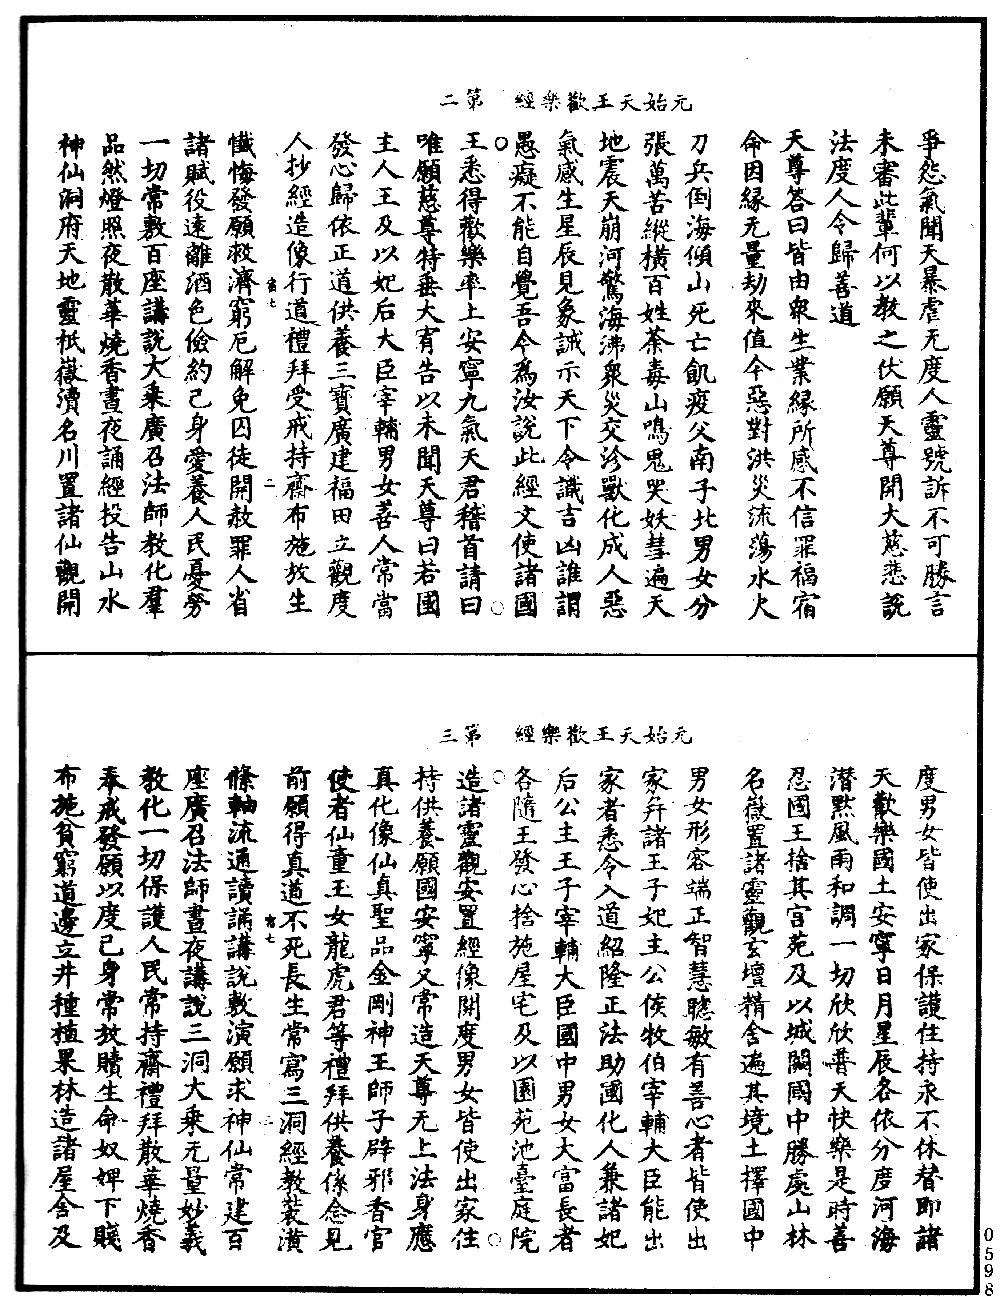 爭怨氣聞天暴虐无度人靈號訴不可勝言
未審此輩何以教之伏願天尊開大慈悲說
法度人令歸善道
天尊答曰皆由衆生業緣所感不信罪福宿
命因緣无量劫來值今惡對洪災流蕩水火
元始天王歡樂經　第二
刀兵倒海傾山死亡飢疫父南子北男女分
張萬苦縱橫百姓荼毒山鳴鬼哭妖彗遍天
地震天崩河驚海沸衆災交沴獸化成人惡
氣感生星辰見象誡示天下令識吉凶誰謂
愚癡不能自覺吾今爲汝說此經文使諸國
王悉得歡樂率土安寧九氣天君稽首請曰
唯願慈尊特垂大宥告以未聞天尊曰若國
主人王及以妃后大臣宰輔男女善人常當
發心歸依正道供養三寶廣建福田立觀度
人抄經造像行道禮拜受戒持齋布施放生
二
懺悔發願救濟窮厄解免囚徒開赦罪人省
諸賦役遠離酒色儉約己身愛養人民憂勞
一切常敷百座講說大乘廣召法師教化羣
品然燈照夜散華燒香晝夜誦經投告山水
神仙洞府天地靈祇嶽瀆名川置諸仙觀開
度男女皆使出家保護住持永不休替即諸
天歡樂國土安寧日月星辰各依分度河海
潛默風雨和調一切欣欣普天快樂是時善
忍國王捨其宫苑及以城闕國中勝處山林
名嶽置諸靈觀玄壇精舍遍其境土擇國中
元始天王歡樂經　第三
男女形容端正智慧聰敏有善心者皆使出
家幷諸王子妃主公侯牧伯宰輔大臣能出
家者悉令入道紹隆正法助國化人兼諸妃
后公主王子宰輔大臣國中男女大富長者
各隨王發心捨施屋宅及以園苑池臺庭院
造諸靈觀安置經像開度男女皆使出家住
持供養願國安寧又常造天尊无上法身應
真化像仙真聖品金剛神王師子辟邪香官
使者仙童玉女龍虎君等禮拜供養係念見
前願得真道不死長生常寫三洞經教裝潢
絛軸流通讀誦講說敷演願求神仙常建百
座廣召法師晝夜講說三洞大乘无量妙義
教化一切保護人民常持齋禮拜散華燒香
奉戒發願以度己身常放贖生命奴婢下賤
布施貧窮道邊立井種植果林造諸屋舍及
0598